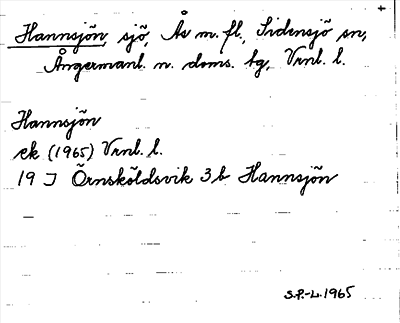 Hannsjön, sjö, Ås m. fl., Sidensjö sn,
Ångermanl. n. doms. tg, Vrnl. l.
Hannsjön
ek (1965) Vrnl. l.
19 J Örnsköldsvik 3 b Hannsjön
S.P.-L. 1965